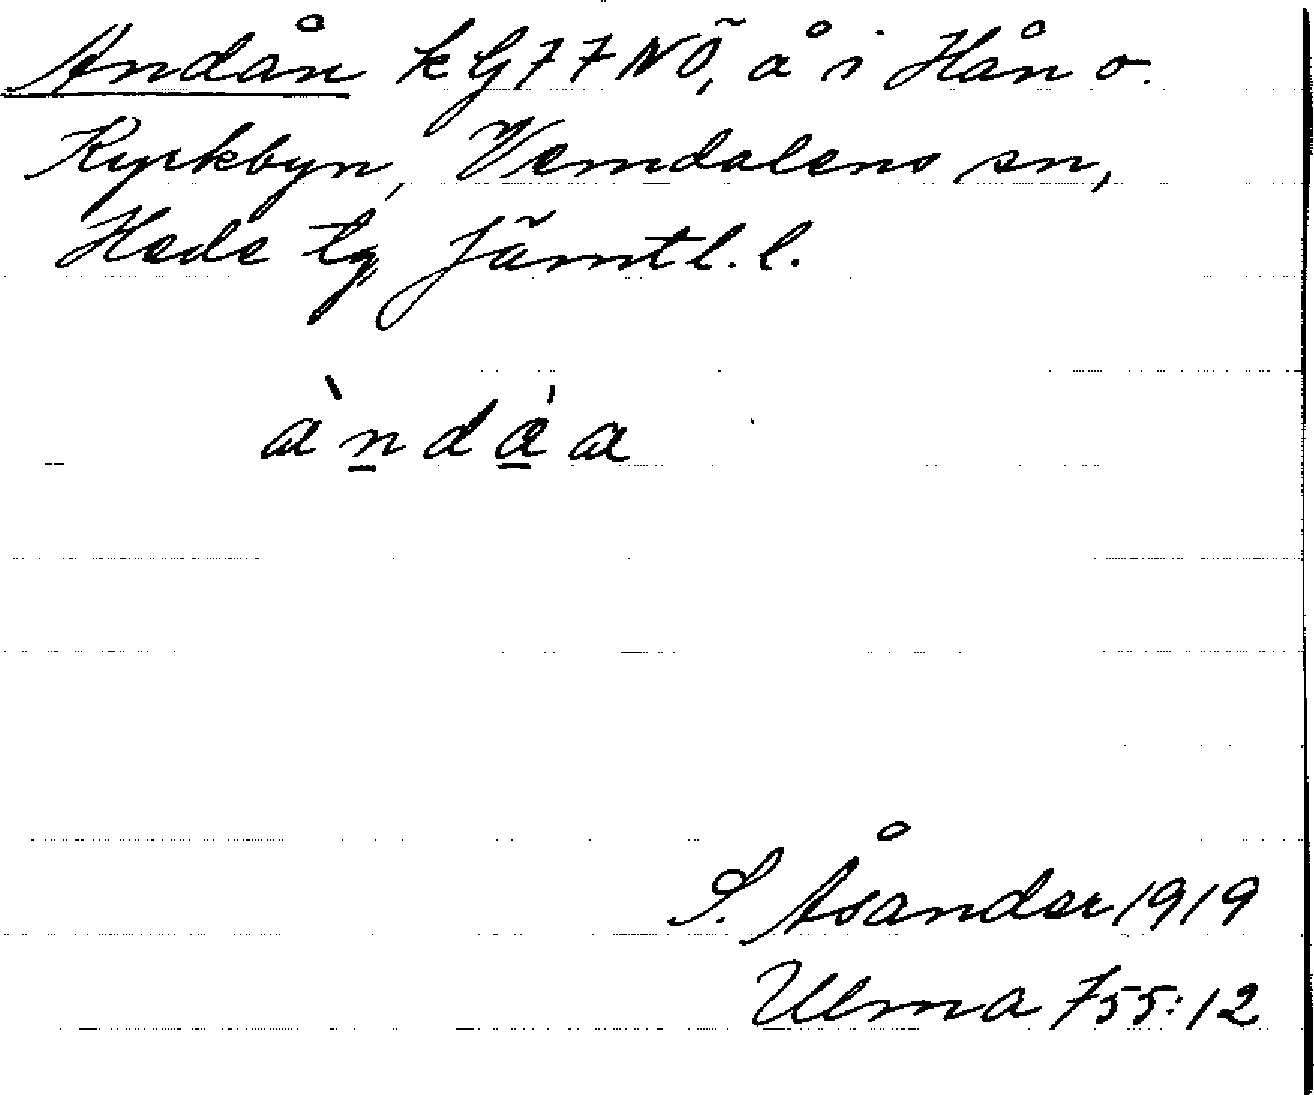 Andån kG77NÖ, å i Hån o.
Kyrkbyn, Vemdalens sn,
Hede tg Jämtl. l.
àn̲da̲̍a
S. Åsander 1919
Ulma 755:12